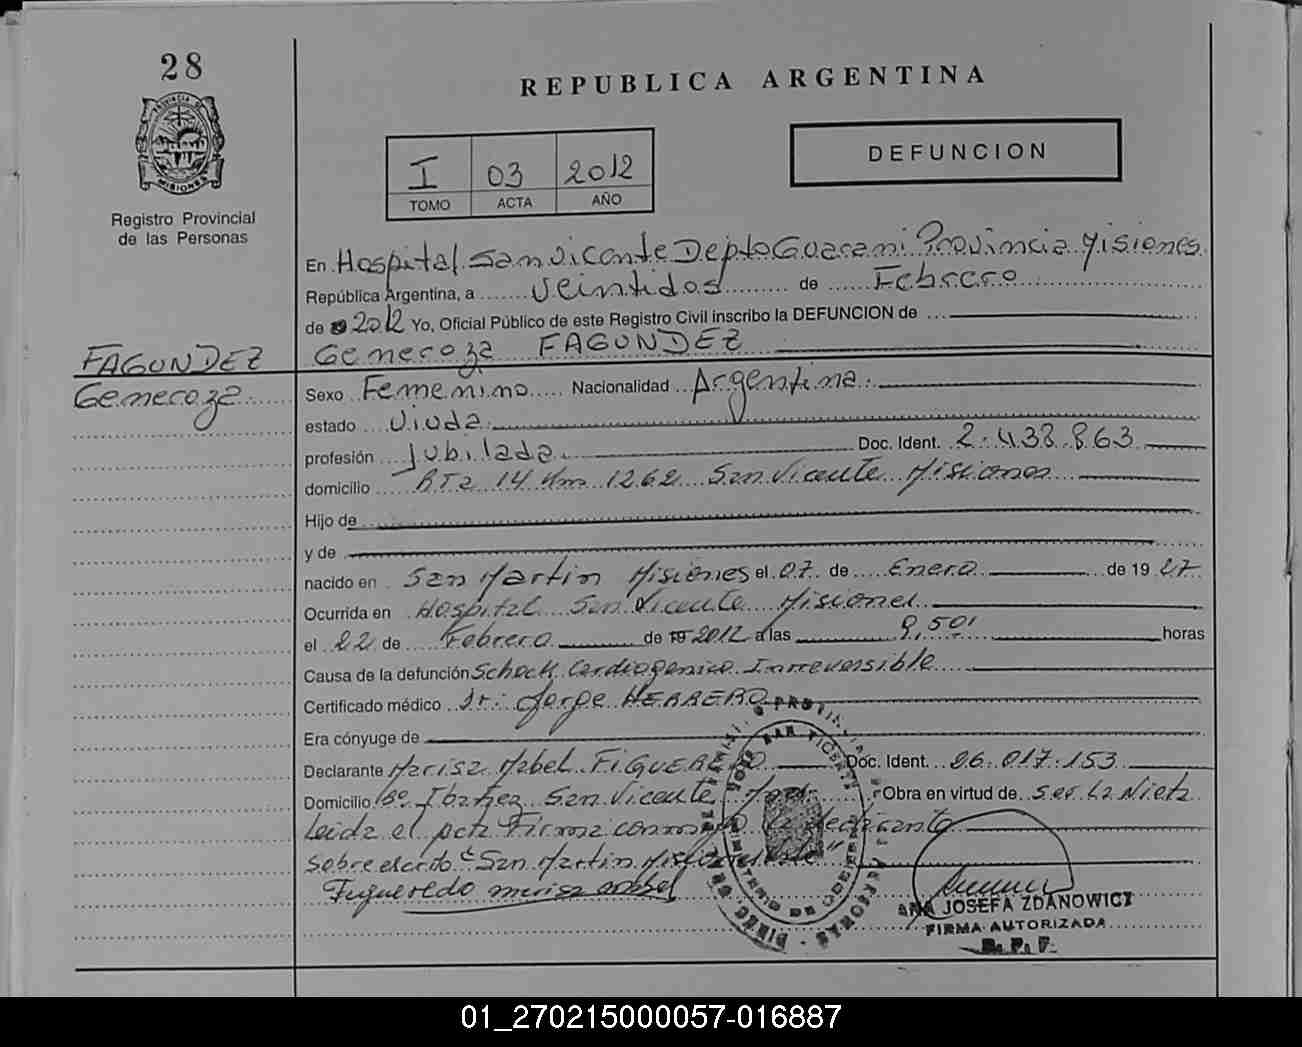 28
REPUBLICA ARGENTINA
PROVINCIA DE
MISIONES
Registro Provincial
de las Personas
I 03 2012
TOMO ACTA AÑO
DEFUNCION
En Hospital San Vicente Depto Guarani Provincia Misiones
República Argentina, a veintidos de Febrero
de 2012 Yo, Oficial Público de este Registro Civil inscribo la DEFUNCION de
Generoza FAGUNDEZ
FAGUNDEZ
Generoza
Sexo Femenino Nacionalidad Argentina
estado viuda
profesión jubilada Doc. Ident. 2.438.863
domicilio RTa 14 Km 1262 San Vicente Misiones
Hijo de
y de
nacido en San Martin Misiones el 07 de Enero de 19 27
Ocurrida en Hospital San Vicente Misiones
el 22 de Febrero de 19 2012 a las 9,50' horas
Causa de la defunción Schock Cardiogenico Irreversible
Certificado médico Dr: Jorge HERRERO
Era cónyuge de
Declarante Marisa Mabel FIGUEREDO Doc. Ident. 26.017.153
Domicilio Bº Ibañez San Vicente Obra en virtud de ser La Nieta
Leida el acta Firma conmigo la declarante
Sobre "San Martin
Figueredo marisa mabel
ANA JOSEFA ZDANOWICZ
FIRMA AUTORIZADA
R. P. P.
01_270215000057-016887